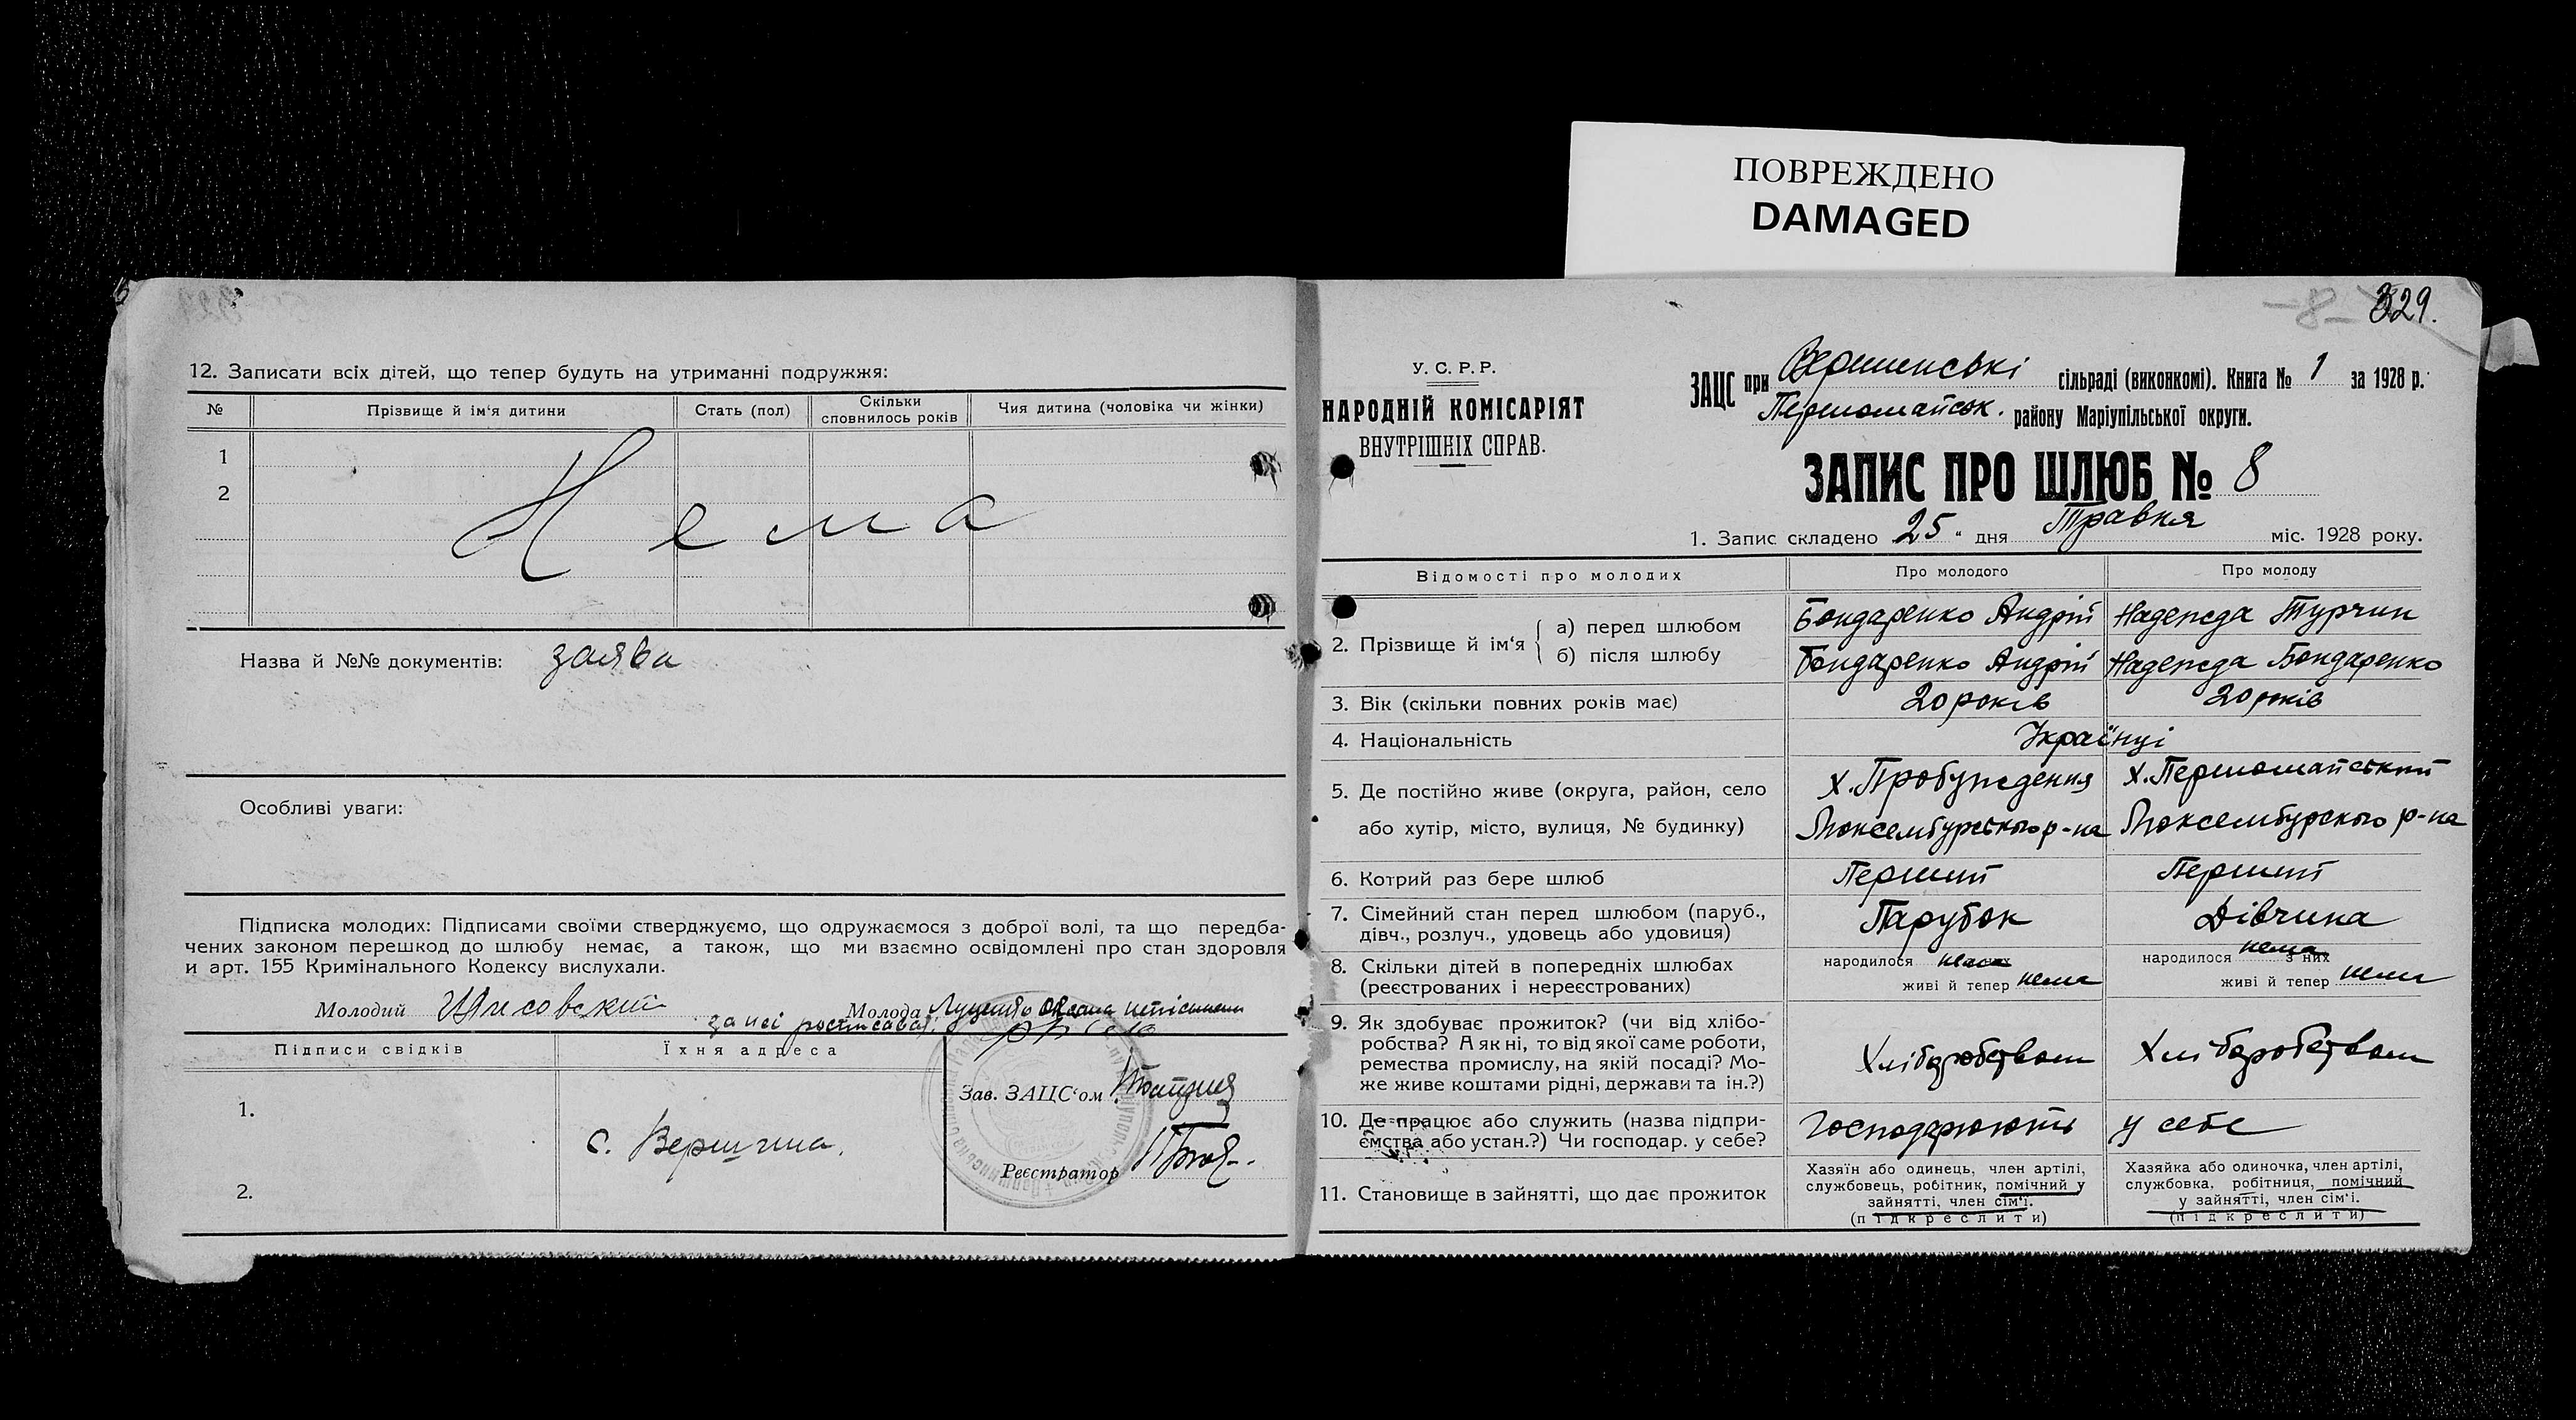 ПОВРЕЖДЕНО
DAMAGED
12. Записати всіх дітей, що тепер будуть на утриманні подружжя:
№ Прізвище й ім‘я дитини Стать (пол) Скільки сповнилось років Чия дитина (чоловіка чи жінки)
1
2
Нема
Назва й №№ документів: заява
Особливі уваги:
Підписка молодих: Підписами своїми стверджуємо, що одружаємося з доброї волі, та що передба-
чених законом перешкод до шлюбу немає, а також, що ми взаємно освідомлені про стан здоровля
и арт. 155 Кримінального Кодексу вислухали.
Молодий Молода
Підписи свідків Їхня адреса
1.
с. Вершина.
2.
Зав. ЗАЦС‘ом
Реєстратор
329.
-8-
У. С. Р. Р.
НАРОДНІЙ КОМІСАРІЯТ
ВНУТРІШНІХ СПРАВ.
ЗАЦС при Вершинські сільраді (виконкомі). Книга № 1 за 1928 р.
Першомайськ. району Маріупільської округи.
ЗАПИС ПРО ШЛЮБ № 8
1. Запис складено 25 " дня Травня міс. 1928 року.
Відомості про молодих Про молодого Про молоду
2. Прізвище й ім‘я
а) перед шлюбом Бондаренко Андрій Надежда Турчин
б) після шлюбу Бондаренко Андрій Надежда Бондаренко
3. Вік (скільки повних років має) 20 років 20 років
4. Національність Українці
5. Де постійно живе (округа, район, село х. Пробуждения х. Першомайський
або хутір, місто, вулиця, № будинку) Люксембурського р-на Люксембурского р-на
6. Котрий раз бере шлюб Перший Перший
7. Сімейний стан перед шлюбом (паруб., Парубок Дівчина
дівч., розлуч., удовець або удовиця)
8. Скільки дітей в попередніх шлюбах народилося нема з них народилося нема з них
(реєстрованих і нереєстрованих) живі й тепер нема живі й тепер нема
9. Як здобуває прожиток? (чи від хлібо-
робства? А як ні, то від якої саме роботи,
ремества промислу, на якій посаді? Мо-
же живе коштами рідні, держави та ін.?)
Хліборобством Хліборобством
10. Де працює або служить (назва підпри-
ємства або устан.?) Чи господар. у себе?
Господарюють у себе
11. Становище в зайнятті, що дає прожиток
Хазяїн або одинець, член артілі,
службовець, робітник, помічний у
зайнятті, член сім‘ї.
(підкреслити)
Хазяйка або одиночка, член артілі,
службовка, робітниця, помічний
у зайнятті, член сім‘ї.
(підкреслити)